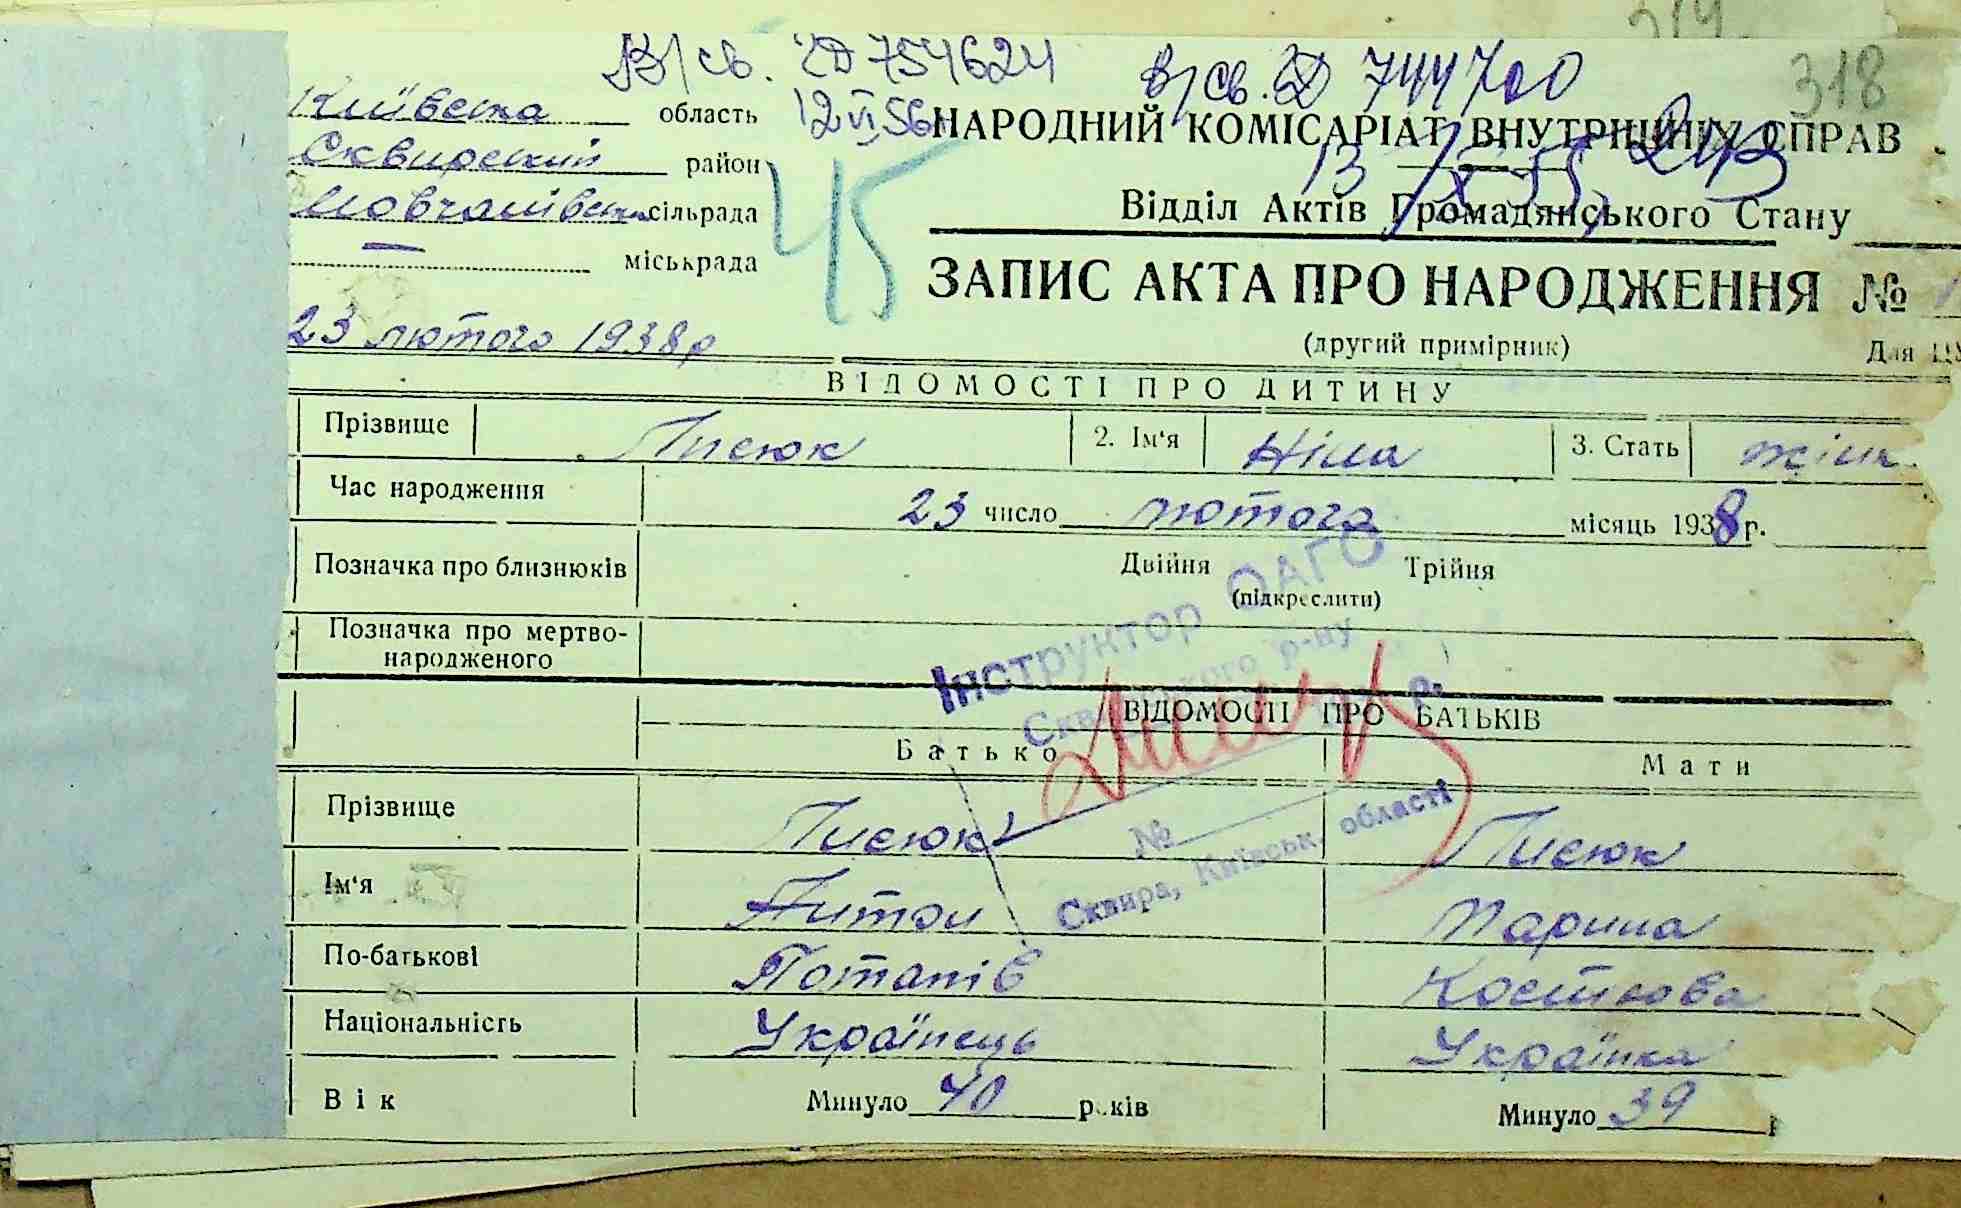 314
В/св. ЕД 754624 В/св. ЕД 744700 318
Київська область 12 VI 56 НАРОДНИЙ КОМІСАРІАТ ВНУТРІШНІХ СПРАВ
Сквирський район 13/IX-55
Мовчанівська сільрада Відділ Актів Громадянського Стану
— міськрада 45
ЗАПИС АКТА ПРО НАРОДЖЕННЯ №
23 лютого 1938 р (другий примірник) Для
ВІДОМОСТІ ПРО ДИТИНУ
Прізвище Писюк 2. Ім'я Ніна 3. Стать жіін.
Час народження 23 число лютого місяць 1938 р.
Позначка про близнюків Двійня Трійня
(підкреслити)
Позначка про мертво-
народженого
Інструктор ОАГС
Сквирського р-ну
ВІДОМОСТІ ПРО БАТЬКІВ
Батько Мати
№
Сквира, Київськ. області
Прізвище Писюк Писюк
Ім'я Антон Марина
По-батькові Потапів Костьова
Національність Українець Українка
Вік Минуло 40 років Минуло 39